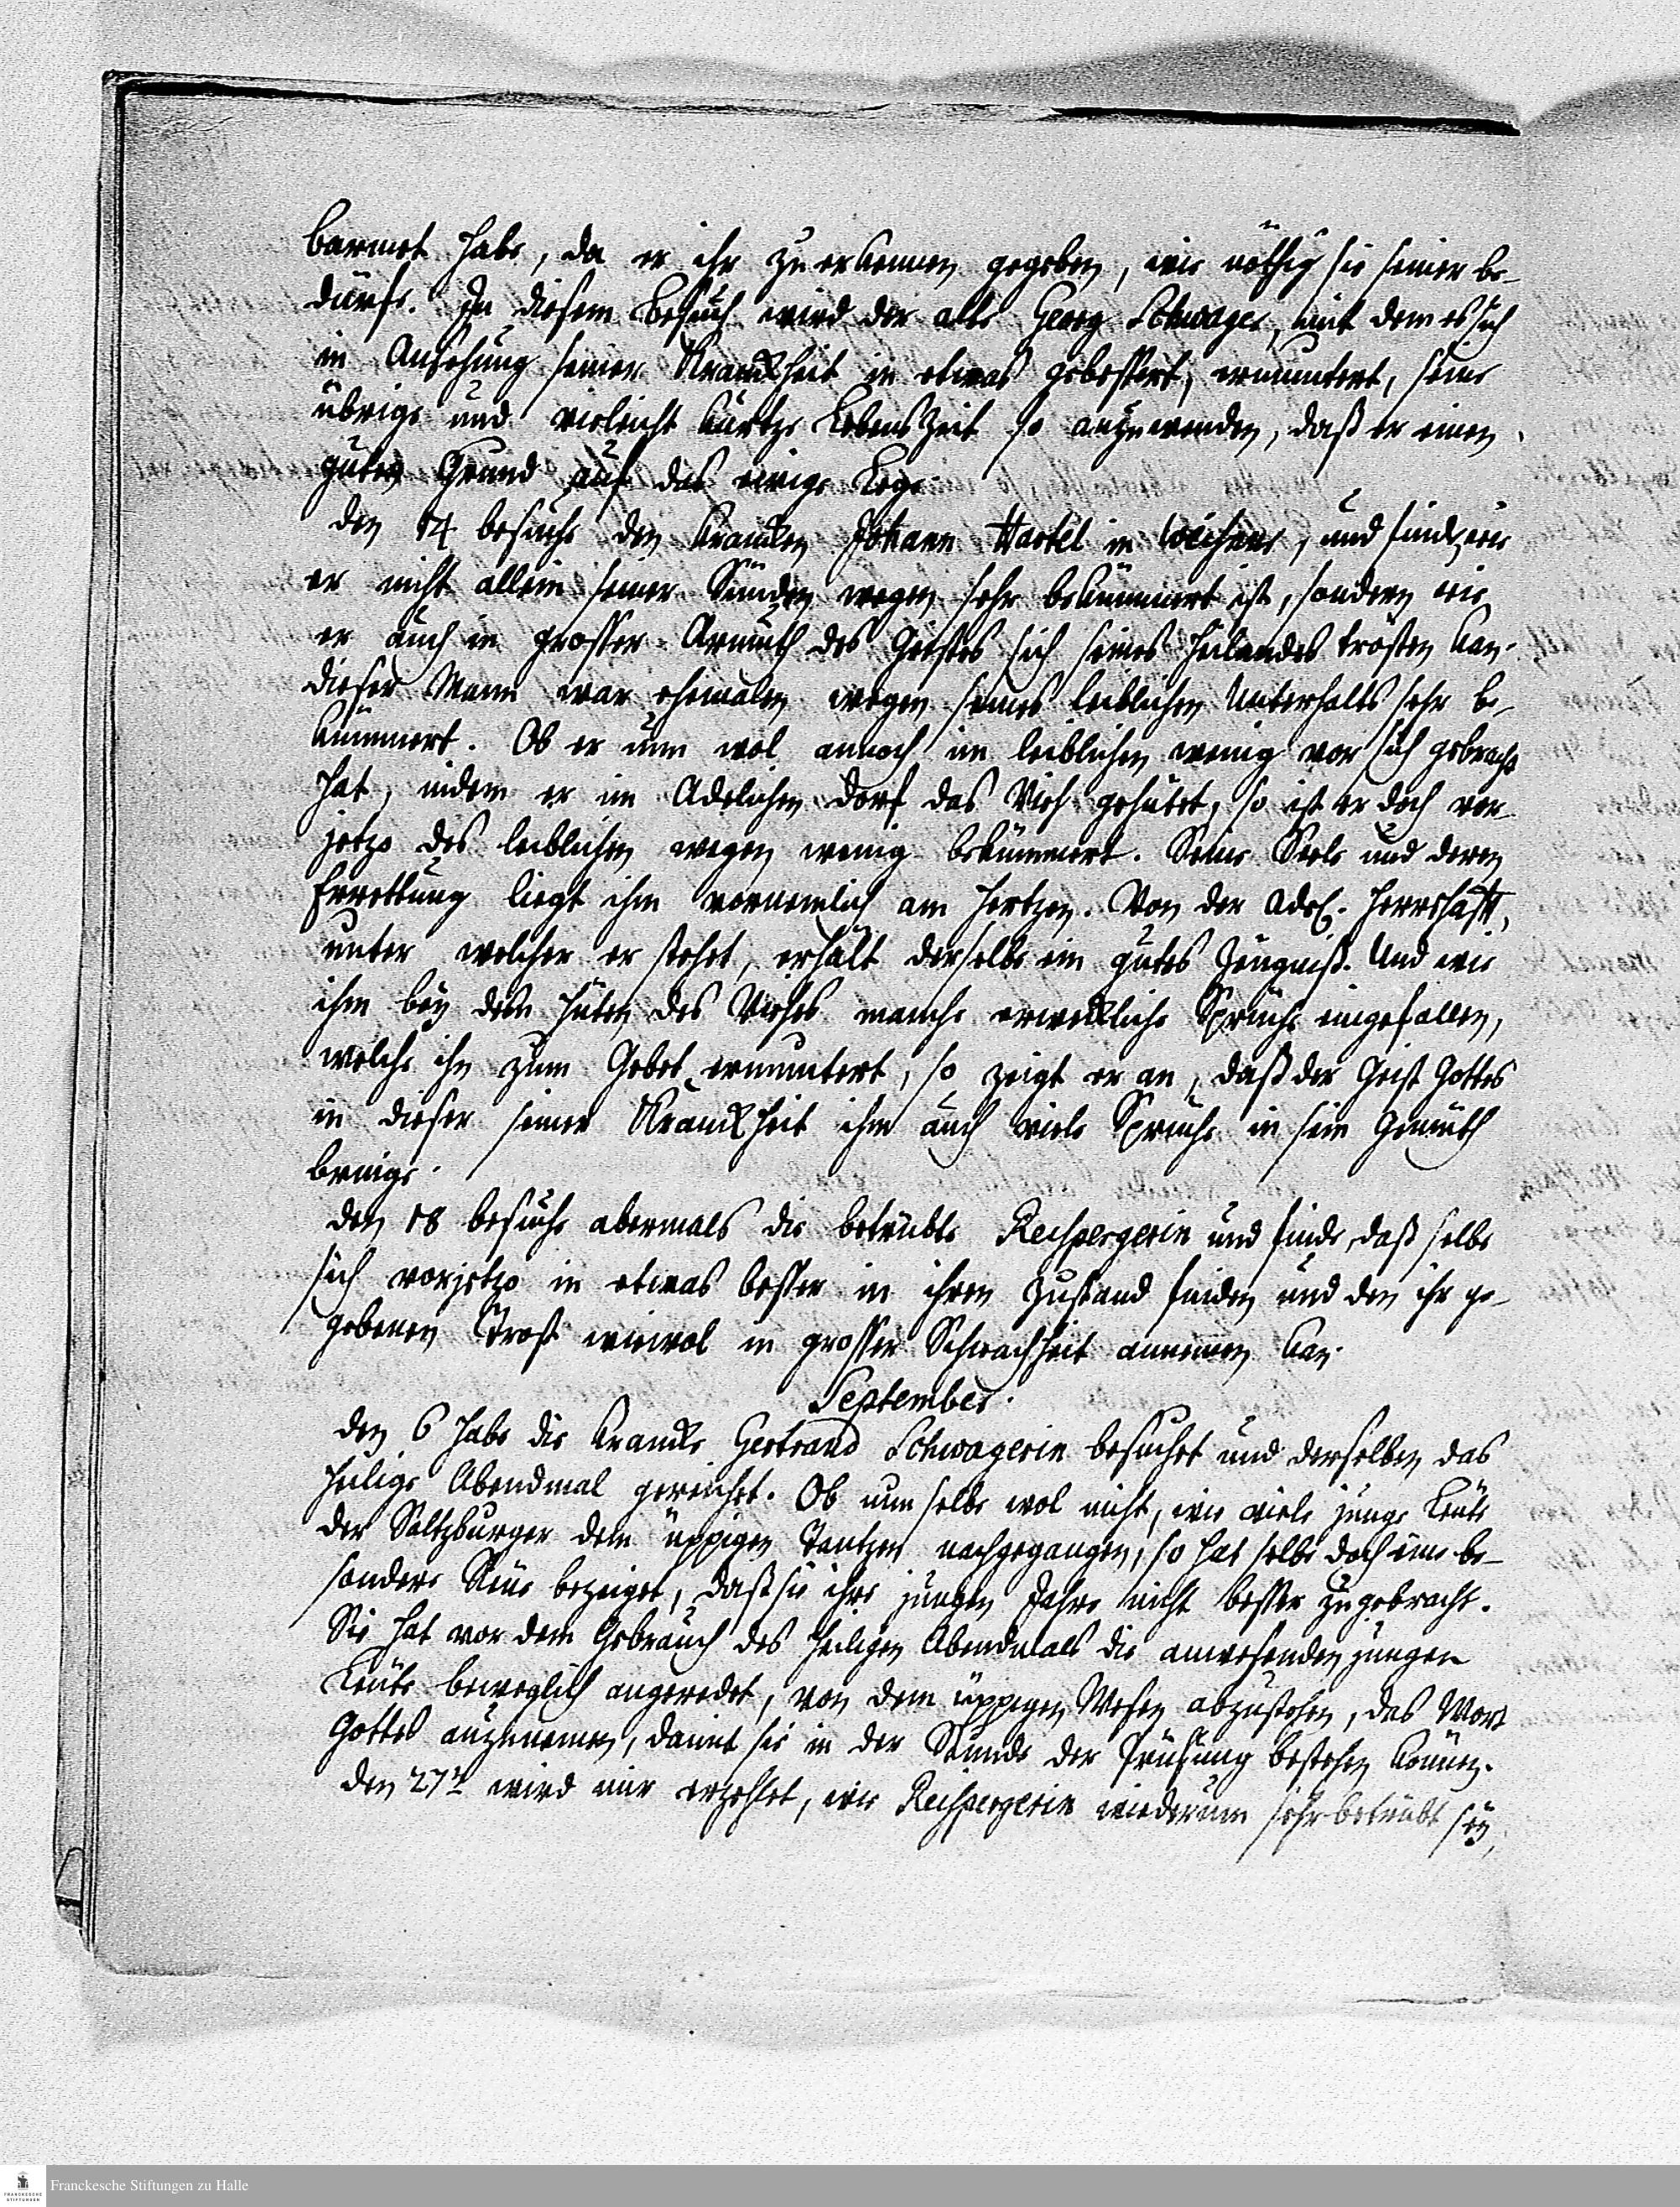 barmet habe, da er ihr zu erkennen gegeben, wie nöthig sie seiner be-
dürfe. In diesem Besuch wird der alte Georg Schwager, mit dem es sich
in Ansehung seiner Kranckheit in etwas gebessert, ermuntert, seine
übrige und vieleicht kurtze Lebens Zeit so anzuwenden, daß er einen
guten Grund auf das ewige Lege.
den 14 besuche den krancken Johann Hartel in , und finde, wie
er nicht allein seiner Sünden wegen sehr bekümmert ist, sondern wie
er auch in grosser Armuth des Geistes sich seines Heilandes trösten kan.
dieser Mann war ehemalen wegen seines leiblichen Unterhalts sehr be-
kümmert. Ob er nun wol annoch im leiblichen wenig vor sich gebracht
hat, indem er im Adelichen dorf das Vieh gehütet, so ist er doch vor-
jetzo des leiblichen wegen wenig bekümmert. Seine Seele und deren
Errettung liegt ihm vornemlich am Hertzen. Von der Adel. Herrschafft,
unter welcher er stehet, erhält derselbe ein gutes Zeugniß. Und wie
ihm bey dem Hüten des Viehes manche erweckliche Sprüche eingefallen,
welche ihn zum Gebet ermuntert, so zeigt er an, daß der Geist Gottes
in dieser seiner Kranckheit ihm auch viele Sprüche in sein Gemüth
bringe.
den 18 besuche abermals die betrübte Reichspergerin und finde, daß selbe
sich vorjetzo in etwas besser in ihren Zustand finden und den ihr ge-
gebenen Trost wiewol in grosser Schwachheit annemen kan.
September.
den 6 habe die krancke Gertraud Schwagerin besuchet und derselben das
heilige Abendmal gereichet. Ob nun selbe wol nicht, wie viele junge Leute
der Saltzburger dem üppigen Tantzen nachgegangen, so hat selbe doch eine be-
sondere Reue bezeiget, daß sie ihre jungen Jahre nicht besser zugebracht.
Sie hat vor dem Gebrauch des heiligen Abendmals die anwesenden jungen
Leute beweglich angeredet, von dem üppigen Wesen abzustehen, das Wort
Gottes anzunemen, damit sie in der Stunde der Prüfung bestehen können.
den 27t wird mir erzehlet, wie Reichspergerin wiederum sehr betrübt sey,
Franckesche Stiftungen zu Halle